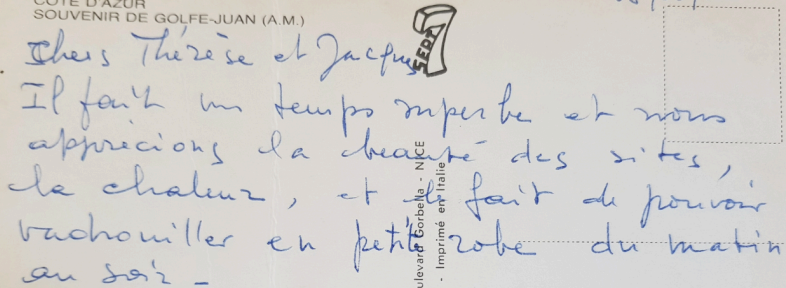 CÔTE D'AZUR
SOUVENIR DE GOLFE-JUAN (A.M.)
SEPT
Chers Thérèse et Jacques
Il fait un temps superbe et nous
apprécions la beauté des sites,
la chaleur, et le fait de pouvoir
vadrouiller en petite robe du matin
au soir -
Gorbella - NICE
- Imprimé en Italie